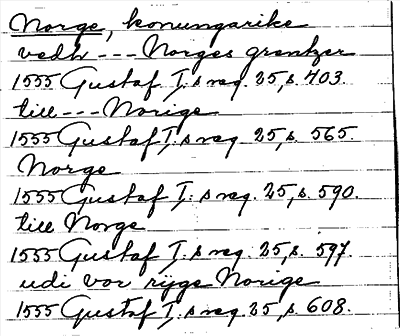 Norge, konungarike
vedh --- Norges grentzer
1555 Gustaf I:s reg. 25, s. 403.
till --- Norige
1555 Gustaf I:s reg. 25, s. 565.
Norge
1555 Gustaf I:s reg. 25, s. 590.
till Norge
1555 Gustaf I:s reg. 25, s. 597.
udi vor rijge Norige
1555 Gustaf I:s reg. 25, s. 608.